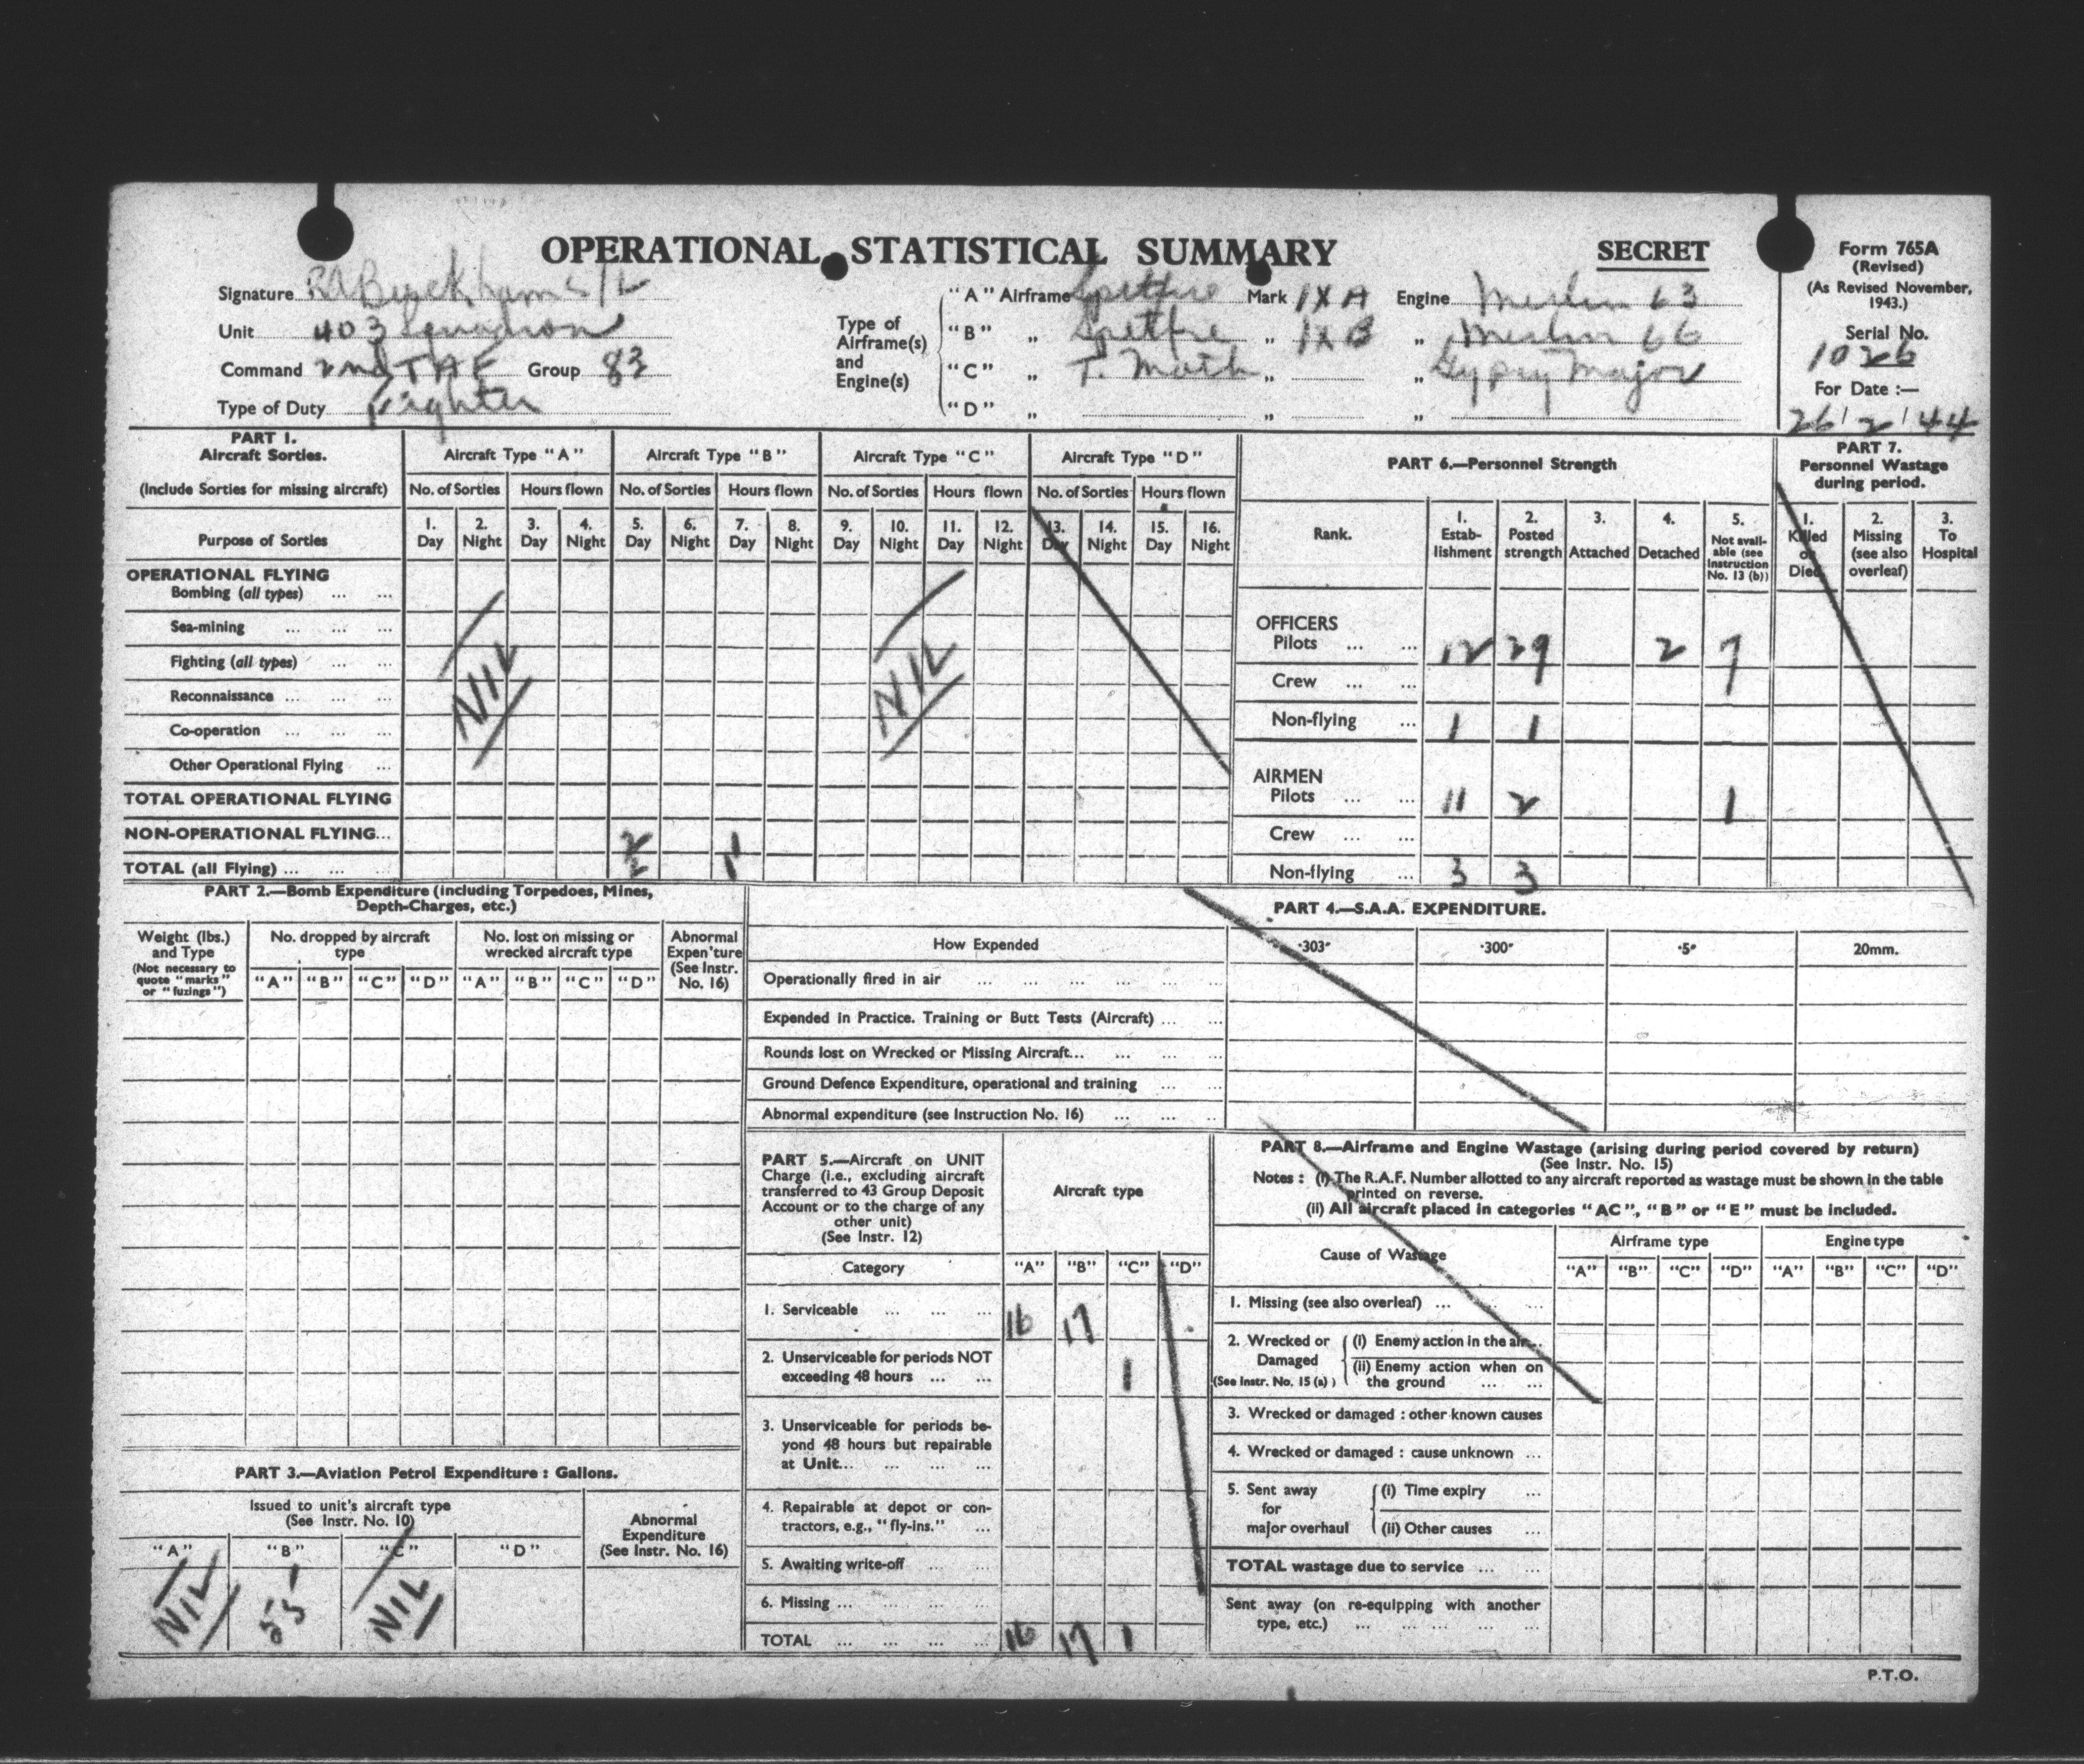 OPERATIONAL STATISTICAL SUMMARY
SECRET
Form 765A
(Revised)
(As Revised November, 1943.)
Signature R A Buckham S/L
Unit 403 Squadron
Command 2nd TAF Group 83
Type of Duty Fighter
Type of Airframe(s) and Engine(s)
"A" Airframe Spitfire Mark IX A Engine Merlin 63
"B" „ Spitfire „ IX B „ Merlin 66
"C" „ T. Moth „ „ Gypsy Major
"D" „ „ „
Serial No.
1026
For Date :—
26/2/44
PART 1.
Aircraft Sorties.
(Include Sorties for missing aircraft)
Aircraft Type "A" Aircraft Type "B" Aircraft Type "C" Aircraft Type "D"
No. of Sorties Hours flown No. of Sorties Hours flown No. of Sorties Hours flown No. of Sorties Hours flown
Purpose of Sorties
1. Day 2. Night 3. Day 4. Night 5. Day 6. Night 7. Day 8. Night 9. Day 10. Night 11. Day 12. Night 13. Day 14. Night 15. Day 16. Night
OPERATIONAL FLYING
Bombing (all types) ... ...
Sea-mining ... ... ...
Fighting (all types) ... ...
Reconnaissance ... ... ...
Co-operation ... ... ...
Other Operational Flying ...
NIL NIL
TOTAL OPERATIONAL FLYING
NON-OPERATIONAL FLYING... 2 1
TOTAL (all Flying) ... ... ... 2 1
PART 6.—Personnel Strength
Rank.
1. Estab-lishment
2. Posted strength
3. Attached
4. Detached
5. Not avail-able (see Instruction No. 13 (b))
OFFICERS
Pilots ... ... 12 29 2 7
Crew ... ...
Non-flying ... 1 1
AIRMEN
Pilots ... ... 11 2 1
Crew ... ...
Non-flying ... 3 3
PART 7.
Personnel Wastage
during period.
1. Killed or Died
2. Missing (see also overleaf)
3. To Hospital
PART 2.—Bomb Expenditure (including Torpedoes, Mines,
Depth-Charges, etc.)
Weight (lbs.) and Type
(Not necessary to quote "marks" or "fuzings")
No. dropped by aircraft type
No. lost on missing or wrecked aircraft type
Abnormal Expen'ture (See Instr. No. 16)
"A" "B" "C" "D" "A" "B" "C" "D"
PART 4.—S.A.A. EXPENDITURE.
How Expended ·303" ·300" ·5" 20mm.
Operationally fired in air ... ... ... ... ... ...
Expended in Practice. Training or Butt Tests (Aircraft) ... ...
Rounds lost on Wrecked or Missing Aircraft... ... ... ...
Ground Defence Expenditure, operational and training ... ...
Abnormal expenditure (see Instruction No. 16) ... ... ..
PART 3.—Aviation Petrol Expenditure : Gallons.
Issued to unit's aircraft type
(See Instr. No. 10)
Abnormal Expenditure (See Instr. No. 16)
"A" "B" "C" "D"
NIL 55 NIL
PART 5.—Aircraft on UNIT
Charge (i.e., excluding aircraft
transferred to 43 Group Deposit
Account or to the charge of any
other unit)
(See Instr. 12)
Aircraft type
Category "A" "B" "C" "D"
1. Serviceable ... ... ... 16 17
2. Unserviceable for periods NOT
exceeding 48 hours ... ... 1
3. Unserviceable for periods be-
yond 48 hours but repairable
at Unit... ... ... ...
4. Repairable at depot or con-
tractors, e.g., "fly-ins." ...
5. Awaiting write-off ... ...
6. Missing ... ... ... ...
TOTAL ... ... ... ... 16 17 1
PART 8.—Airframe and Engine Wastage (arising during period covered by return)
(See Instr. No. 15)
Notes : (i) The R.A.F. Number allotted to any aircraft reported as wastage must be shown in the table
printed on reverse.
(ii) All aircraft placed in categories "AC", "B" or "E" must be included.
Cause of Wastage
Airframe type Engine type
"A" "B" "C" "D" "A" "B" "C" "D"
1. Missing (see also overleaf) ... ... ...
2. Wrecked or Damaged (See Instr. No. 15 (a))
(i) Enemy action in the air...
(ii) Enemy action when on
the ground ... ...
3. Wrecked or damaged : other known causes
4. Wrecked or damaged : cause unknown ...
5. Sent away for major overhaul
(i) Time expiry ...
(ii) Other causes ...
TOTAL wastage due to service ... ...
Sent away (on re-equipping with another
type, etc.) ... ... ... ... ...
P.T.O.